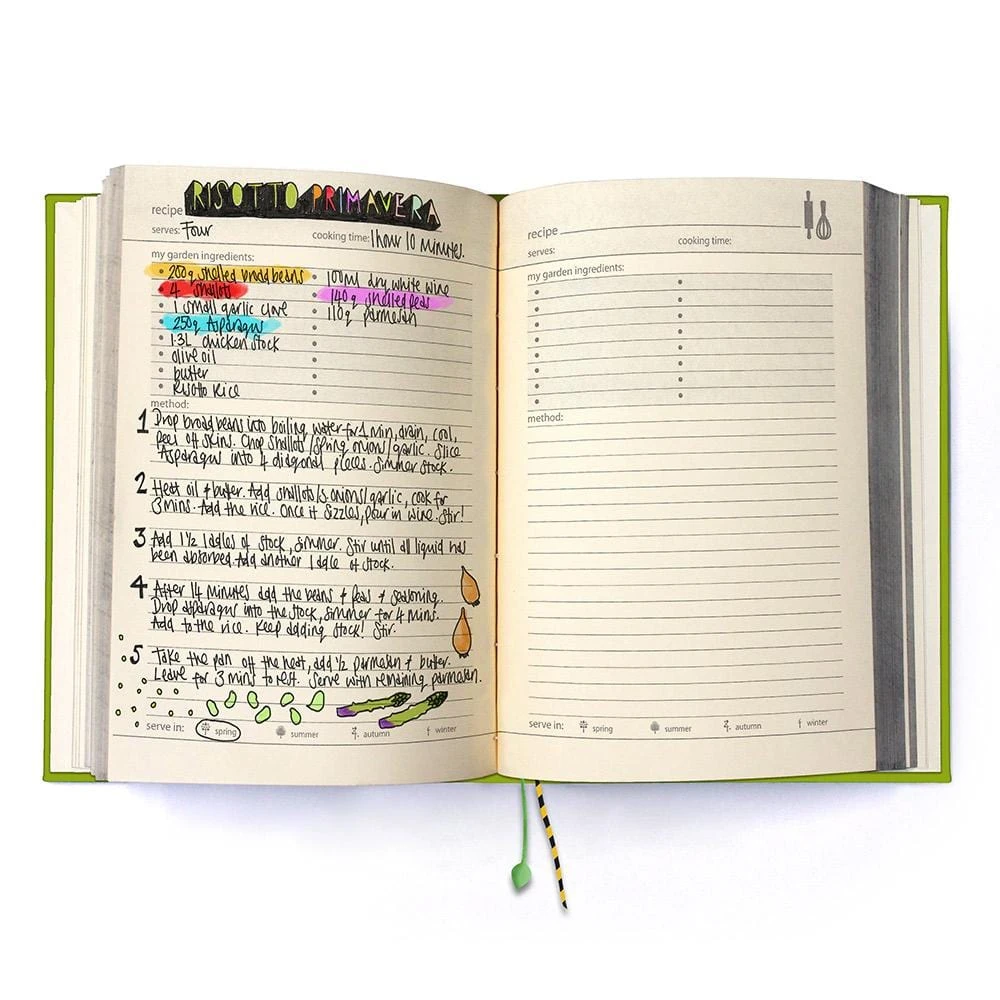 RISOTTO PRIMAVERA
recipe
serves: Four
cooking time: 1 hour 10 minutes.
my garden ingredients:
200g shelled broad beans
4 shallots
1 small garlic clove
250g Asparagus
1.3L chicken stock
olive oil
butter
Risotto Rice
100ml dry white wine
140g shelled peas
110g parmesan
method:
1 Drop broad beans into boiling water for 1 min, drain, cool,
peel off skins. Chop shallots/spring onions/garlic. Slice
Asparagus into 4 diagonal pieces. Simmer stock.
2 Heat oil & butter. Add shallots/s.onions/garlic, cook for
3 mins. Add the rice. Once it sizzles, pour in wine. Stir!
3 Add 1 1/2 ladles of stock, simmer. Stir until all liquid has
been absorbed. Add another ladle of stock.
4 After 14 minutes add the beans & peas & seasoning.
Drop asparagus into the stock, simmer for 4 mins.
Add to the rice. Keep adding stock! Stir.
5 Take the pan off the heat, add 1/2 parmesan & butter.
Leave for 3 mins to rest. Serve with remaining parmesan.
serve in: spring summer autumn winter
recipe
serves:
cooking time:
my garden ingredients:
method:
serve in: spring summer autumn winter